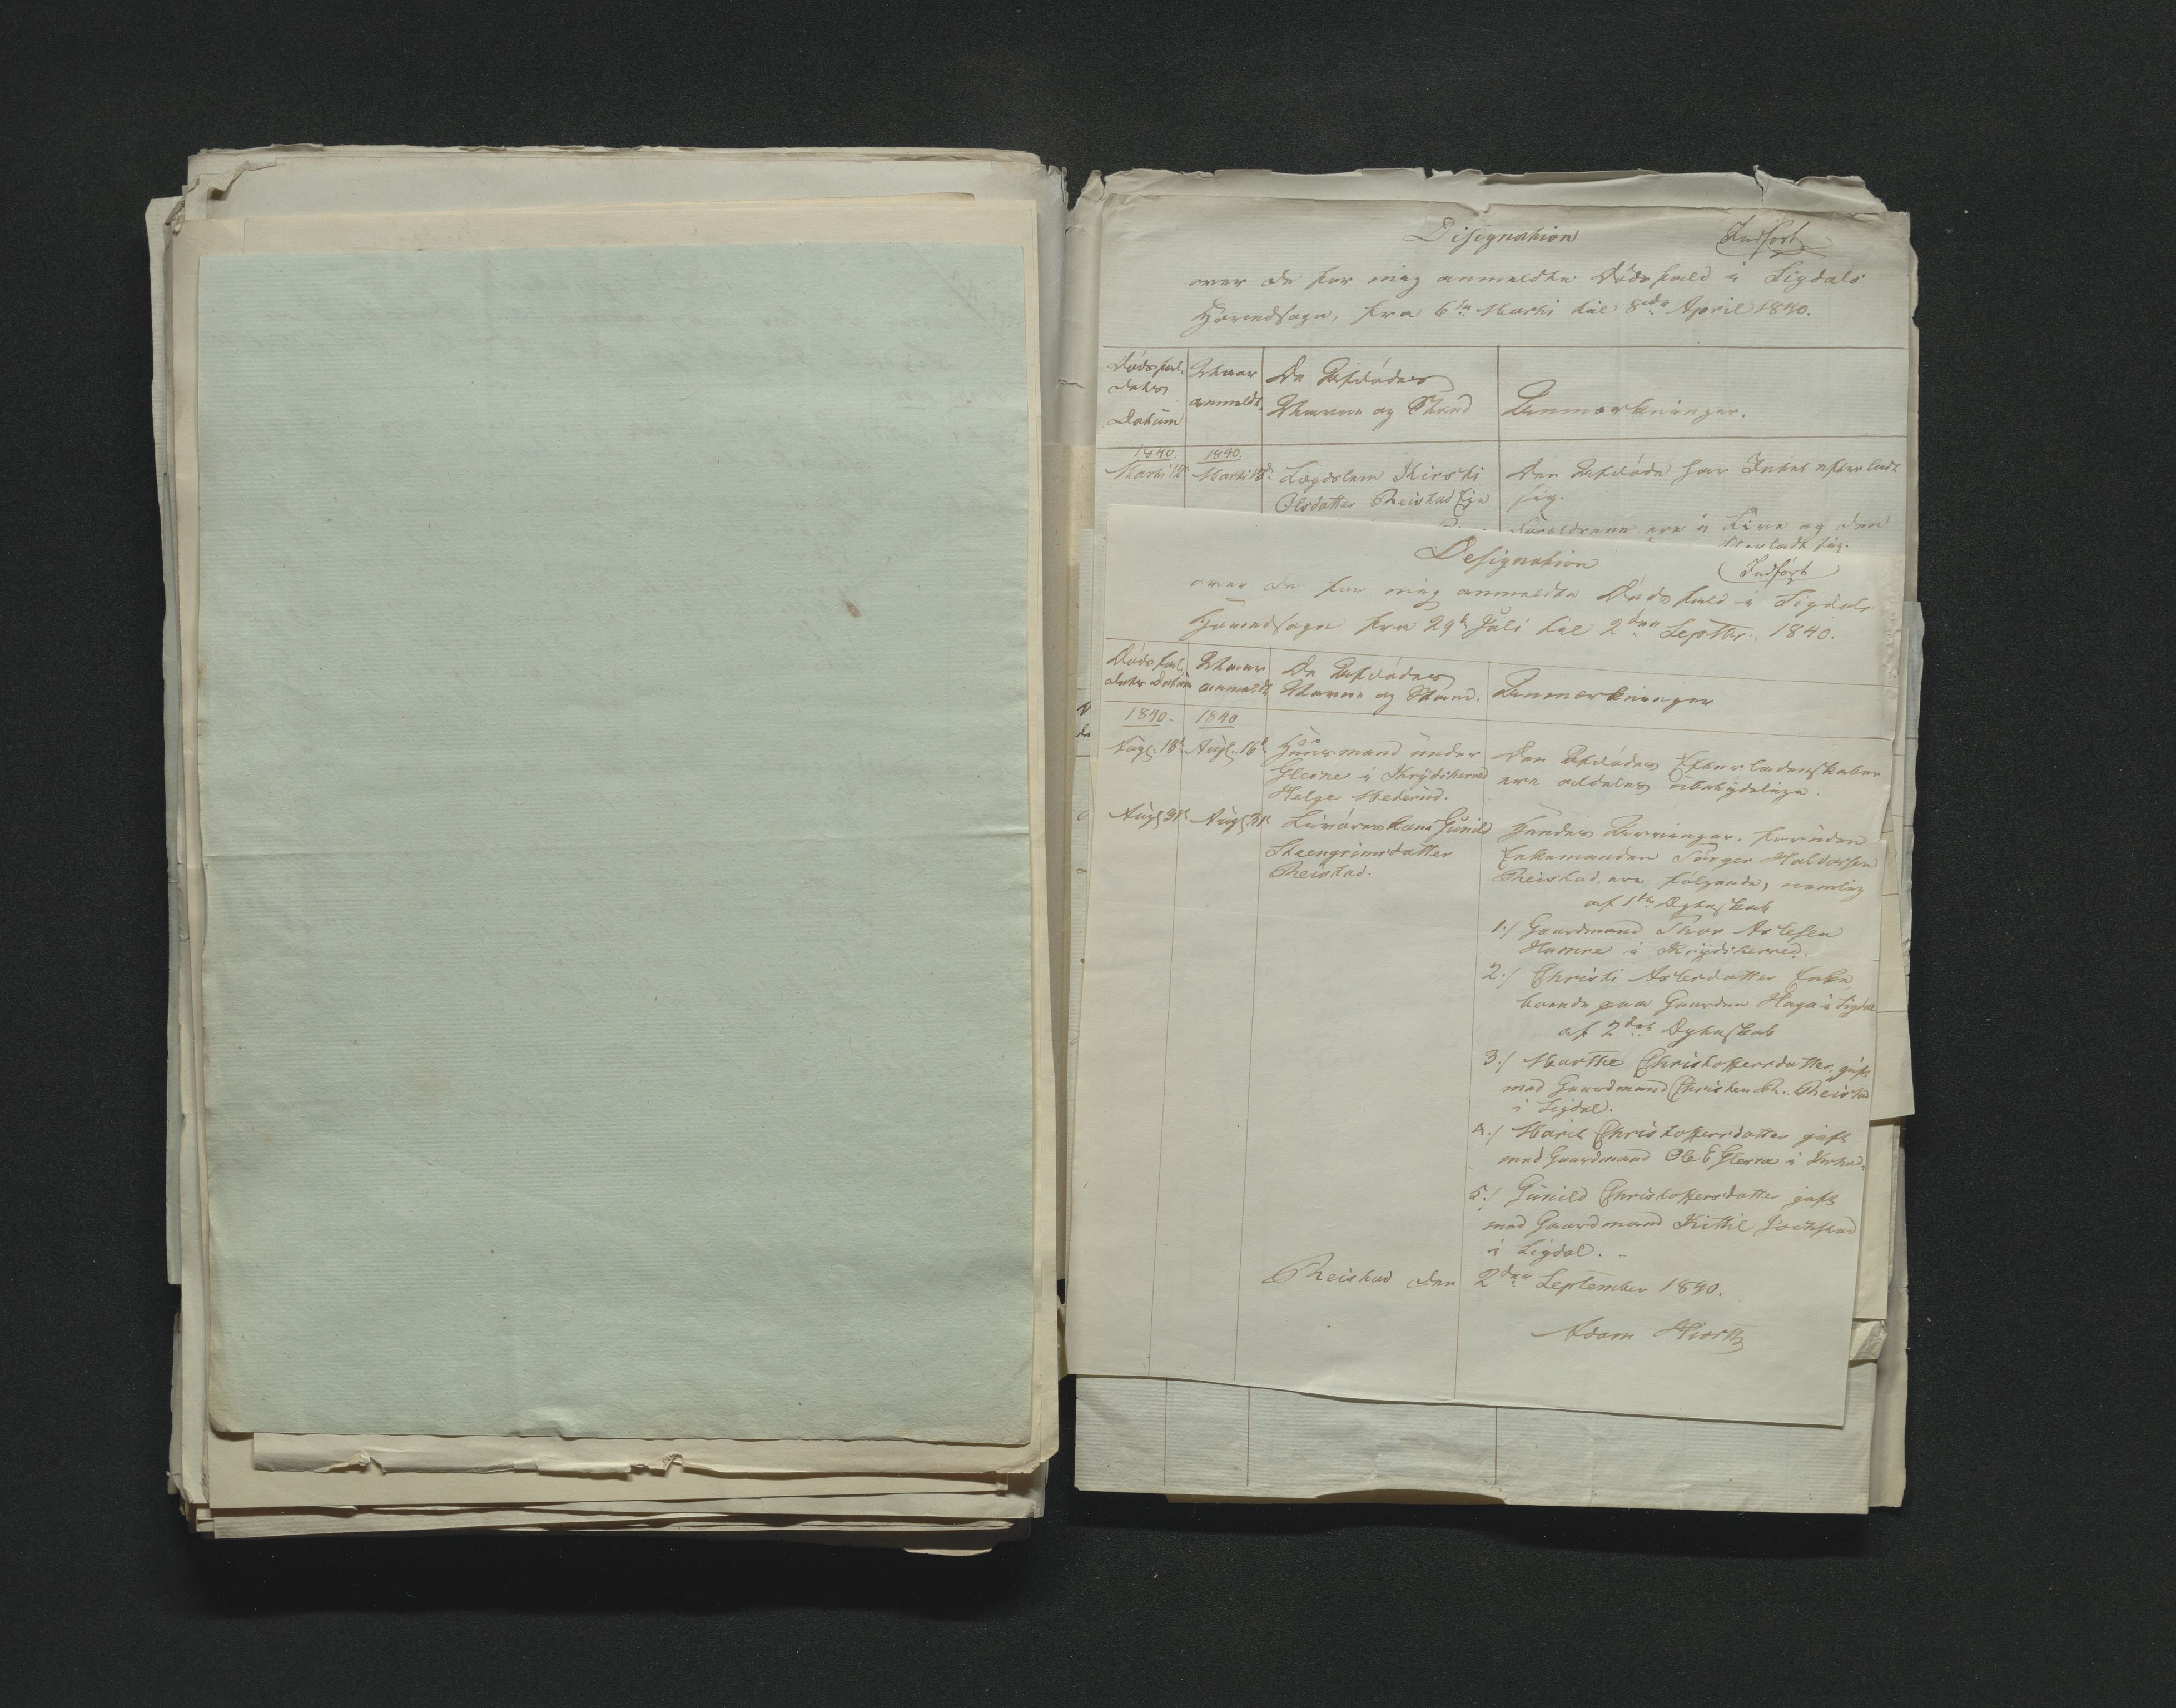 Designation
Indført
over de for mig anmeldte Dødsfald i Sigdals
Hovedsogn, fra 6te Marti til 8de April 1840.
Dødsfal-
dets
Datum
Naar
anmeldt.
De Afdødes
Navne og Stand
Anmærkninger.
1840.
Marti 12
1840.
Marti 13
Lægdslem Kirsti
Olsdatter Reistad Eje
Den Afdøde har Intet efterladt
sig.
Forældrene ere i Live og den
efterladt sig.
Designation
Indført
over de for mig anmeldte Dødsfald i Sigdals
Hovedsogn fra 29de Juli til 2den Septbr. 1840.
Dødsfal-
dets Datum
Naar
anmeldt
De Afdødes
Navne og Stand.
Anmærkninger
1840.
1840
Augs. 13de Augs. 16de
Huusmand under
Glesne i Krydsherred
Helge Mederud.
Den Afdødes Efterladenskaber
ere aldeles ubetydelige.
Augs 31te Augs 31te
Livøreskone Gunild
Steengrimsdatter
Reistad.
Hendes Arvinger, foruden
Enkemanden Törger Haldorsen
Reistad, ere følgende, nemlig
af 1ste Ægteskab
1./ Gaardmand Thor Aslesen
Hamre i Krydsherred.
2./ Christi Aslesdatter Enke
boende paa Gaarden Haga i Sigdal
af 2det Ægteskab
3./ Marthe Christoffersdatter, gift
med Gaardmand Christen Reistad
i Sigdal.
4./ Marit Christoffersdatter gift
med Gaardmand Ole E Glesne i
5./ Gunild Christoffersdatter gift
med Gaardmand Kittil
i Sigdal. -
Reistad den 2den September 1840.
Adam Hiorth